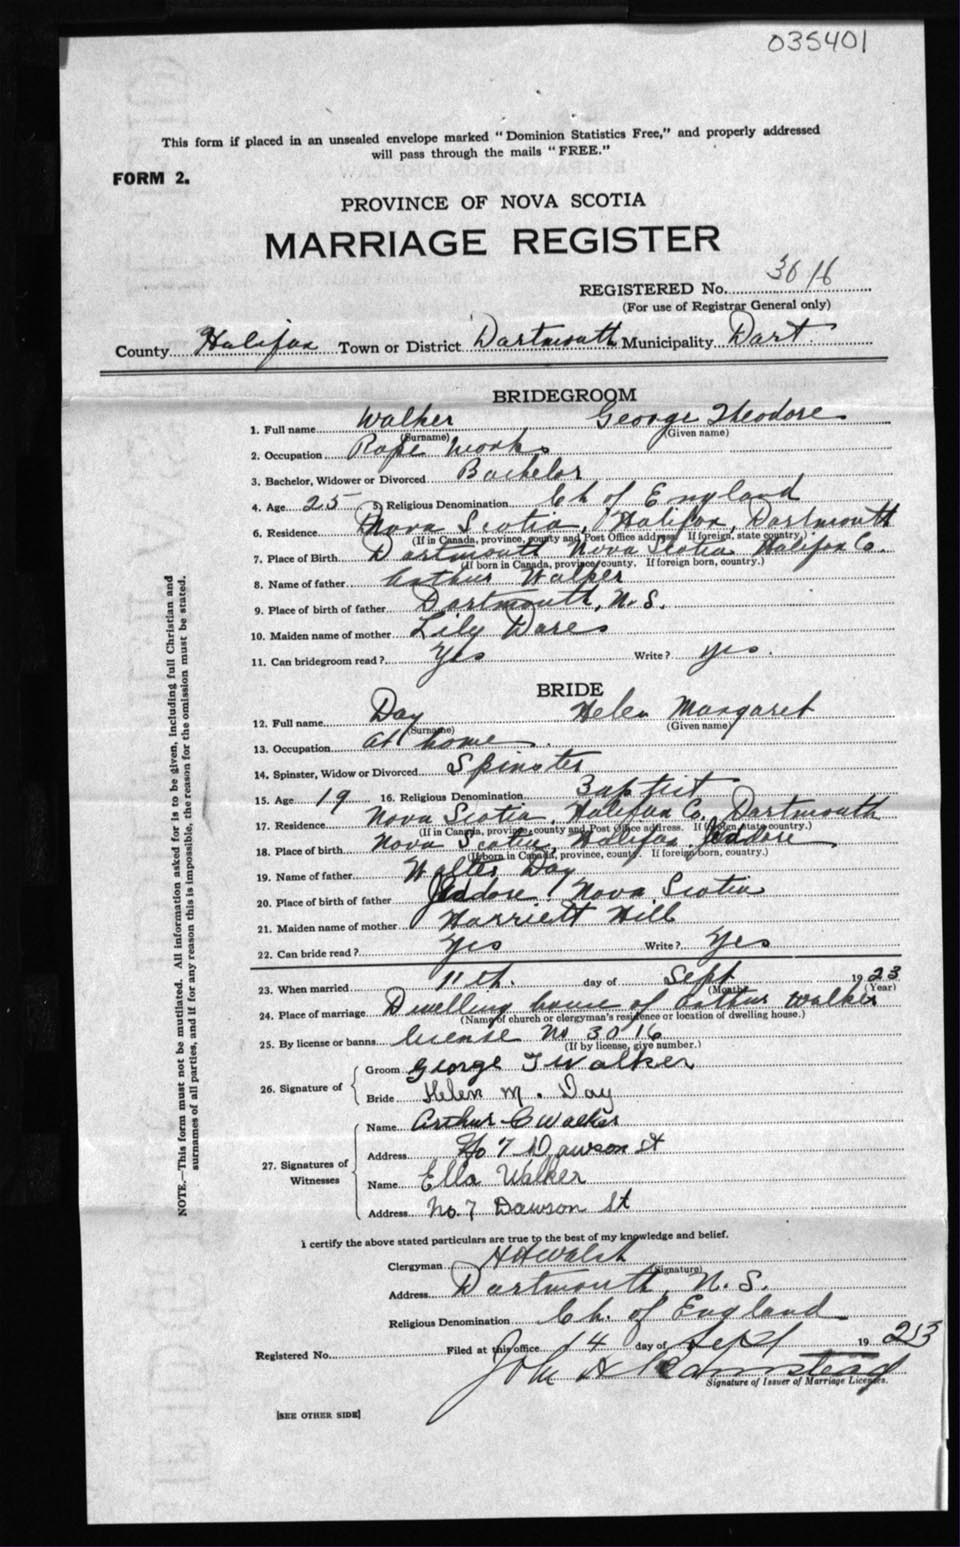 035401
This form if placed in an unsealed envelope marked "Dominion Statistics Free," and properly addressed
will pass through the mails "FREE."
FORM 2.
PROVINCE OF NOVA SCOTIA
MARRIAGE REGISTER
REGISTERED No. 3016
(For use of Registrar General only)
County Halifax Town or District Dartmouth Municipality Dart.
BRIDEGROOM
1. Full name Walker George Theodore
(Surname) (Given name)
2. Occupation Rope Works
3. Bachelor, Widower or Divorced Bachelor
4. Age 25 5. Religious Denomination Ch of England
6. Residence Nova Scotia, Halifax, Dartmouth
(If in Canada, province, county and Post Office address. If foreign, state country.)
7. Place of Birth Dartmouth Nova Scotia Halifax Co.
(If born in Canada, province, county. If foreign born, country.)
8. Name of father Arthur Walker
9. Place of birth of father Dartmouth, N.S.
10. Maiden name of mother Lily Dares
11. Can bridegroom read? Yes Write? yes.
BRIDE
12. Full name Day Helen Margaret
(Surname) (Given name)
13. Occupation at home.
14. Spinster, Widow or Divorced Spinster
15. Age 19 16. Religious Denomination Baptist
17. Residence Nova Scotia, Halifax Co, Dartmouth
(If in Canada, province, county and Post Office address. If foreign, state country.)
18. Place of birth Nova Scotia, Halifax, Jedore
(If born in Canada, province, county. If foreign born, country.)
19. Name of father Walter Day
20. Place of birth of father Jedore, Nova Scotia
21. Maiden name of mother Harriett Hill
22. Can bride read? Yes Write? Yes
23. When married 11th. day of Sept 1923
(Month) (Year)
24. Place of marriage Dwelling house of Arthur Walker
(Name of church or clergyman's residence or location of dwelling house.)
25. By license or banns license No 3016
(If by license, give number.)
26. Signature of
Groom George T Walker
Bride Helen M. Day
27. Signatures of Witnesses
Name Arthur C Walker
Address No 7 Dawson St
Name Ella Walker
Address No. 7 Dawson St
I certify the above stated particulars are true to the best of my knowledge and belief.
Clergyman H Walsh
(Signature)
Address Dartmouth, N.S.
Religious Denomination Ch. of England
Registered No. Filed at this office 14 day of Sept 1923
John A
Signature of Issuer of Marriage Licenses.
[SEE OTHER SIDE]
NOTE.—This form must not be mutilated. All information asked for is to be given, including full Christian and
surnames of all parties, and if for any reason this is impossible, the reason for the omission must be stated.